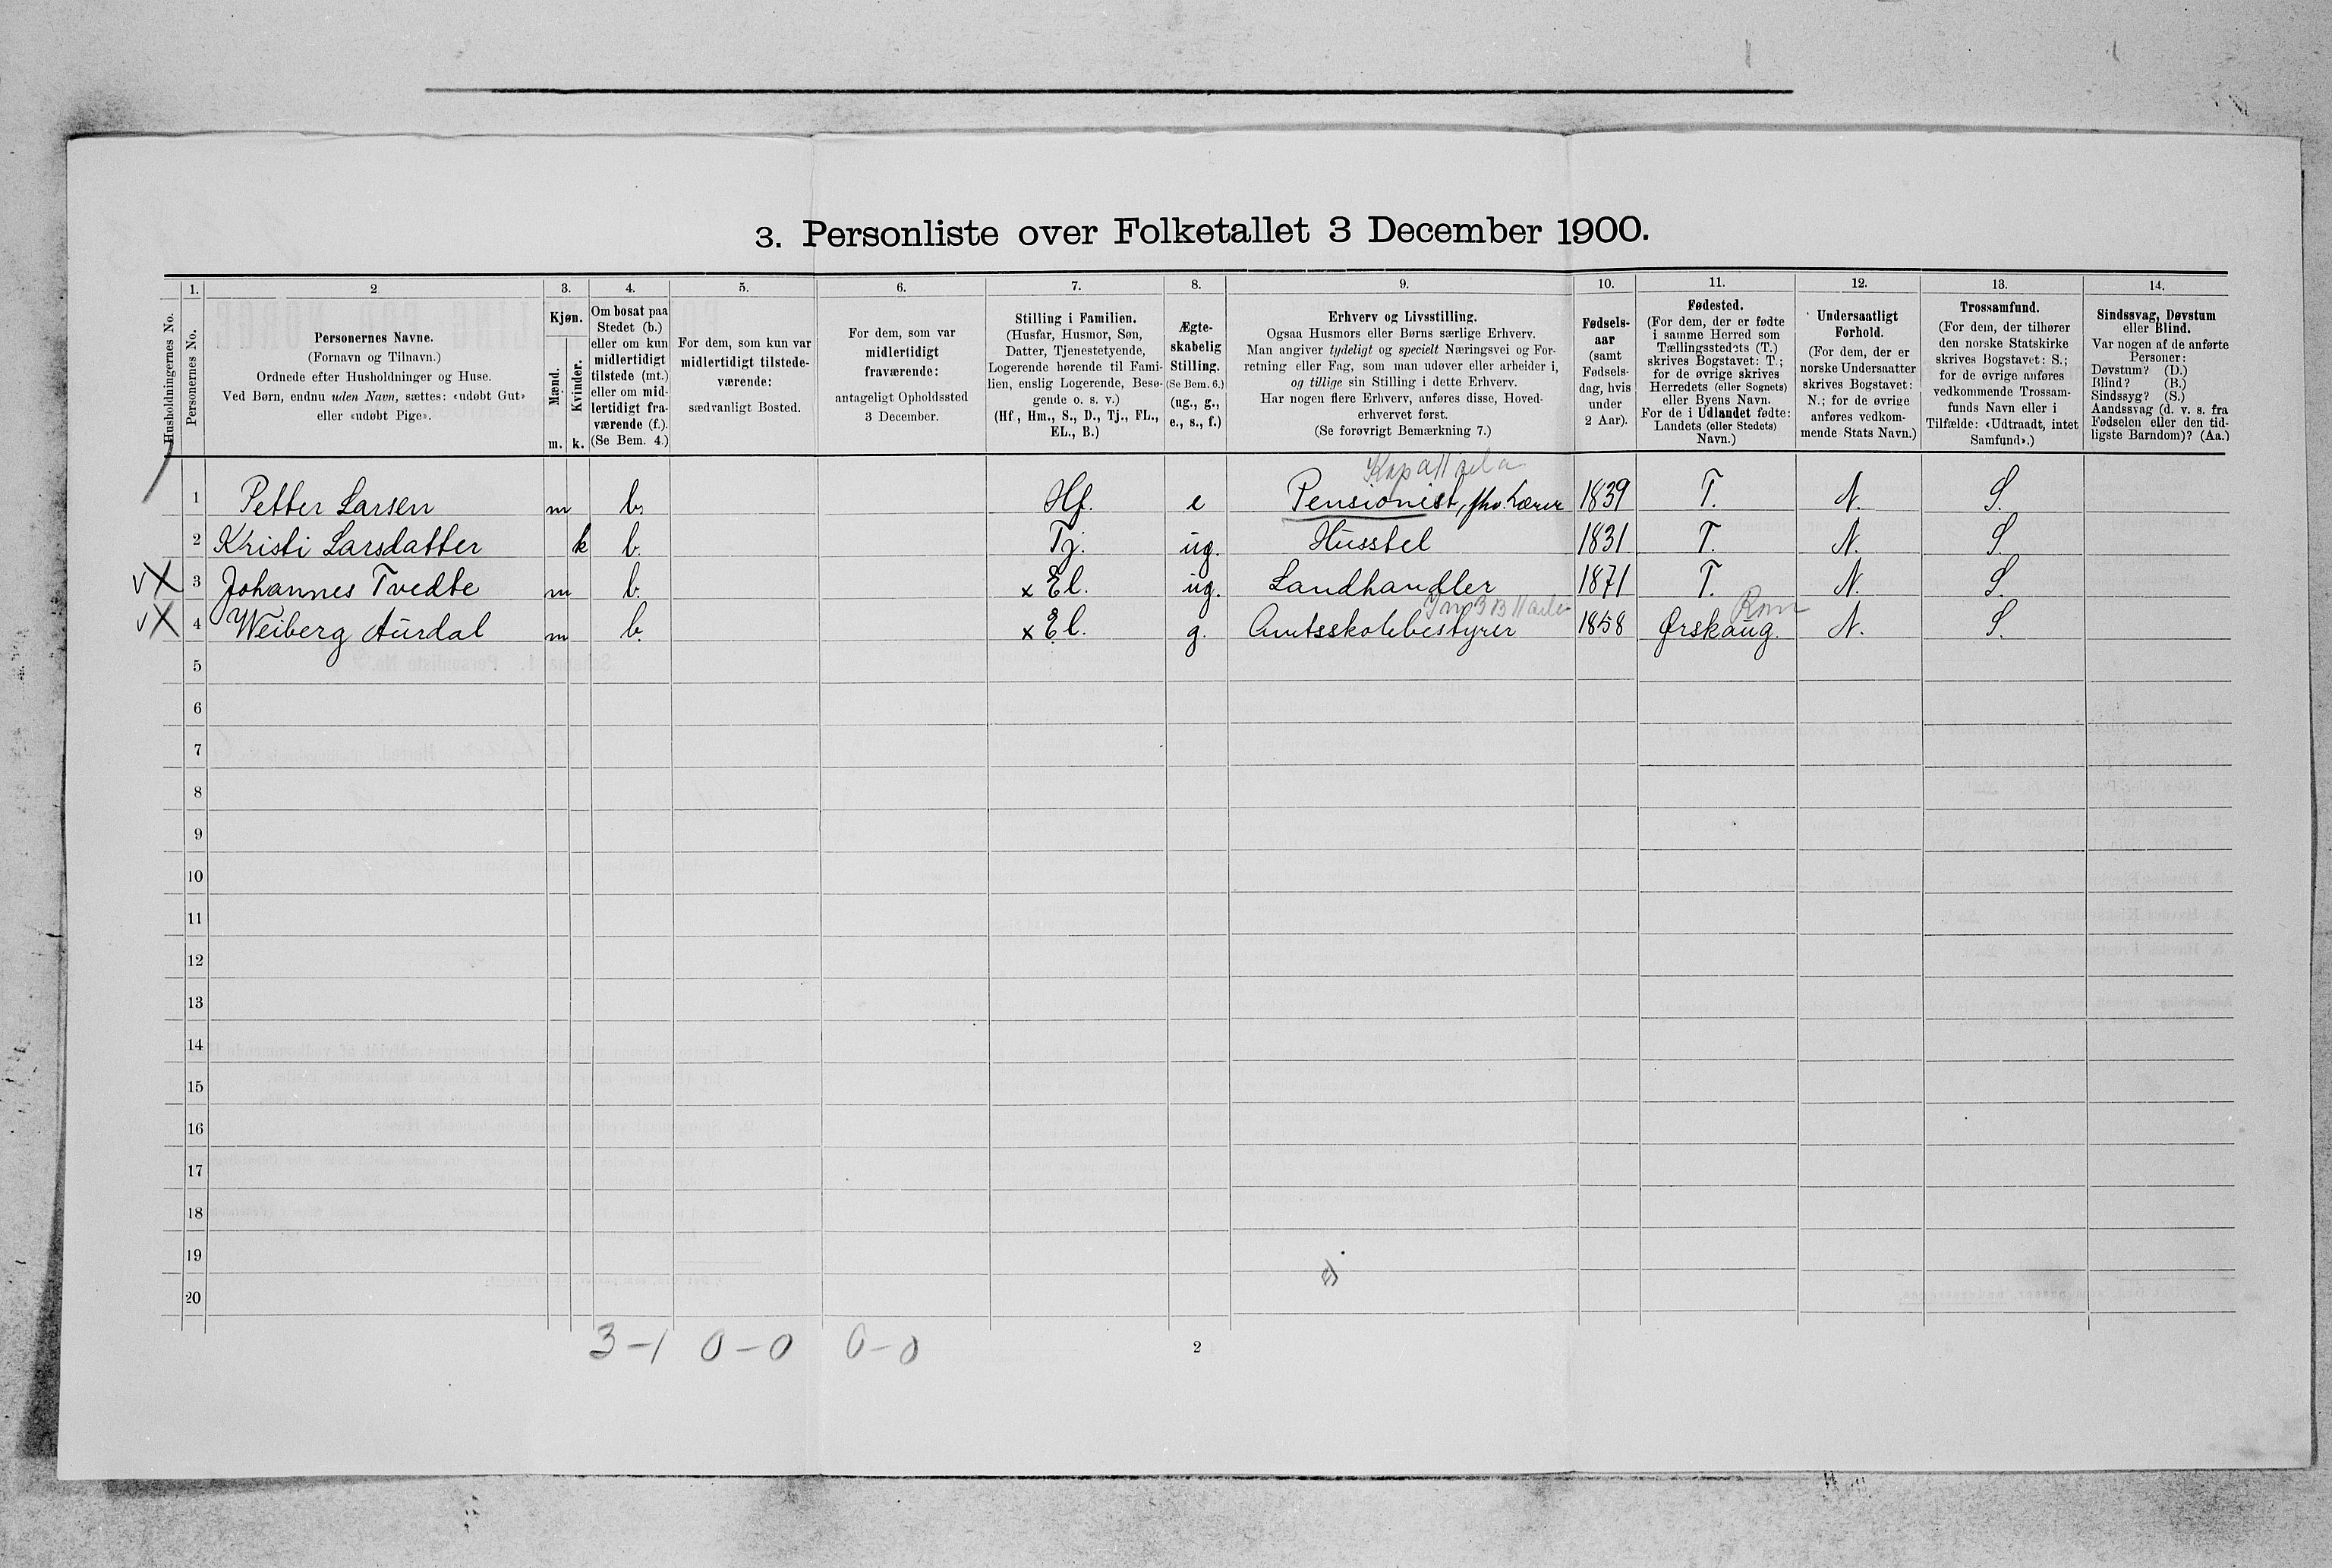 3. Personliste over Folketallet 3 December 1900.
Husholdningernes No.
1.
Personernes No.
2
Personernes Navne.
(Fornavn og Tilnavn.)
Ordnede efter Husholdninger og Huse.
Ved Børn, endnu uden Navn, sættes: «udøbt Gut»
eller «udøbt Pige».
3.
Kjøn.
Mænd.
Kvinder.
m. k.
4.
Om bosat paa
Stedet (b.)
eller om kun
midlertidigt
tilstede (mt.)
eller om mid-
lertidigt fra-
værende (f.).
(Se Bem. 4.)
5.
For dem, som kun var
midlertidigt tilstede-
værende:
sædvanligt Bosted.
6.
For dem, som var
midlertidigt
fraværende:
antageligt Opholdssted
3 December.
7.
Stilling i Familien.
(Husfar, Husmor, Søn,
Datter, Tjenestetyende,
Logerende hørende til Fami-
lien, enslig Logerende, Besø-
gende o. s. v.)
(Hf, Hm., S., D., Tj., FL.,
EL., B.)
8.
Ægte-
skabelig
Stilling.
(Se Bem. 6.)
(ug., g.,
e., s., f.)
9.
Erhverv og Livsstilling.
Ogsaa Husmors eller Børns særlige Erhverv.
Man angiver tydeligt og specielt Næringsvei og For-
retning eller Fag, som man udøver eller arbeider i,
og tillige sin Stilling i dette Erhverv.
Har nogen flere Erhverv, anføres disse, Hoved-
erhvervet først.
(Se forøvrigt Bemærkning 7.)
10.
Fødsels-
aar
(samt
Fødsels-
dag, hvis
under
2 Aar).
11.
Fødested.
(For dem, der er fødte
i samme Herred som
Tællingsstedets (T.)
skrives Bogstavet: T.;
for de øvrige skrives
Herredets (eller Sognets)
eller Byens Navn.
For de i Udlandet fødte:
Landets (eller Stedets)
Navn.)
12.
Undersaatligt
Forhold.
(For dem, der er
norske Undersaatter
skrives Bogstavet:
N.; for de øvrige
anføres vedkom-
mende Stats Navn.)
13.
Trossamfund.
(For dem, der tilhører
den norske Statskirke
skrives Bogstavet: S.;
for de øvrige anføres
vedkommende Trossam-
funds Navn eller i
Tilfælde: «Udtraadt, intet
Samfund».)
14.
Sindssvag, Døvstum
eller Blind.
Var nogen af de anførte
Personer:
Døvstum? (D.)
Blind? (B.)
Sindssyg? (S.)
Aandssvag (d. v. s. fra
Fødselen eller den tid-
ligste Barndom)? (Aa.)
1 Petter Larsen m b. Hf. e Pensionist, fhv. Lærer 1839 T. N. S.
2 Kristi Larsdatter k b. Tj. ug. Husstel 1831 T. N. S.
3 Johannes Tvedte m b. x El. ug. Landhandler 1871 T. N. S.
Rom
4 Weiberg Aurdal m b. x El. g. Amtsskolebestyrer 1858 Ørskaug. N. S.
5
6
7
8
9
10
11
12
13
14
15
16
17
18
19
20
3-1 0-0 0-0
2